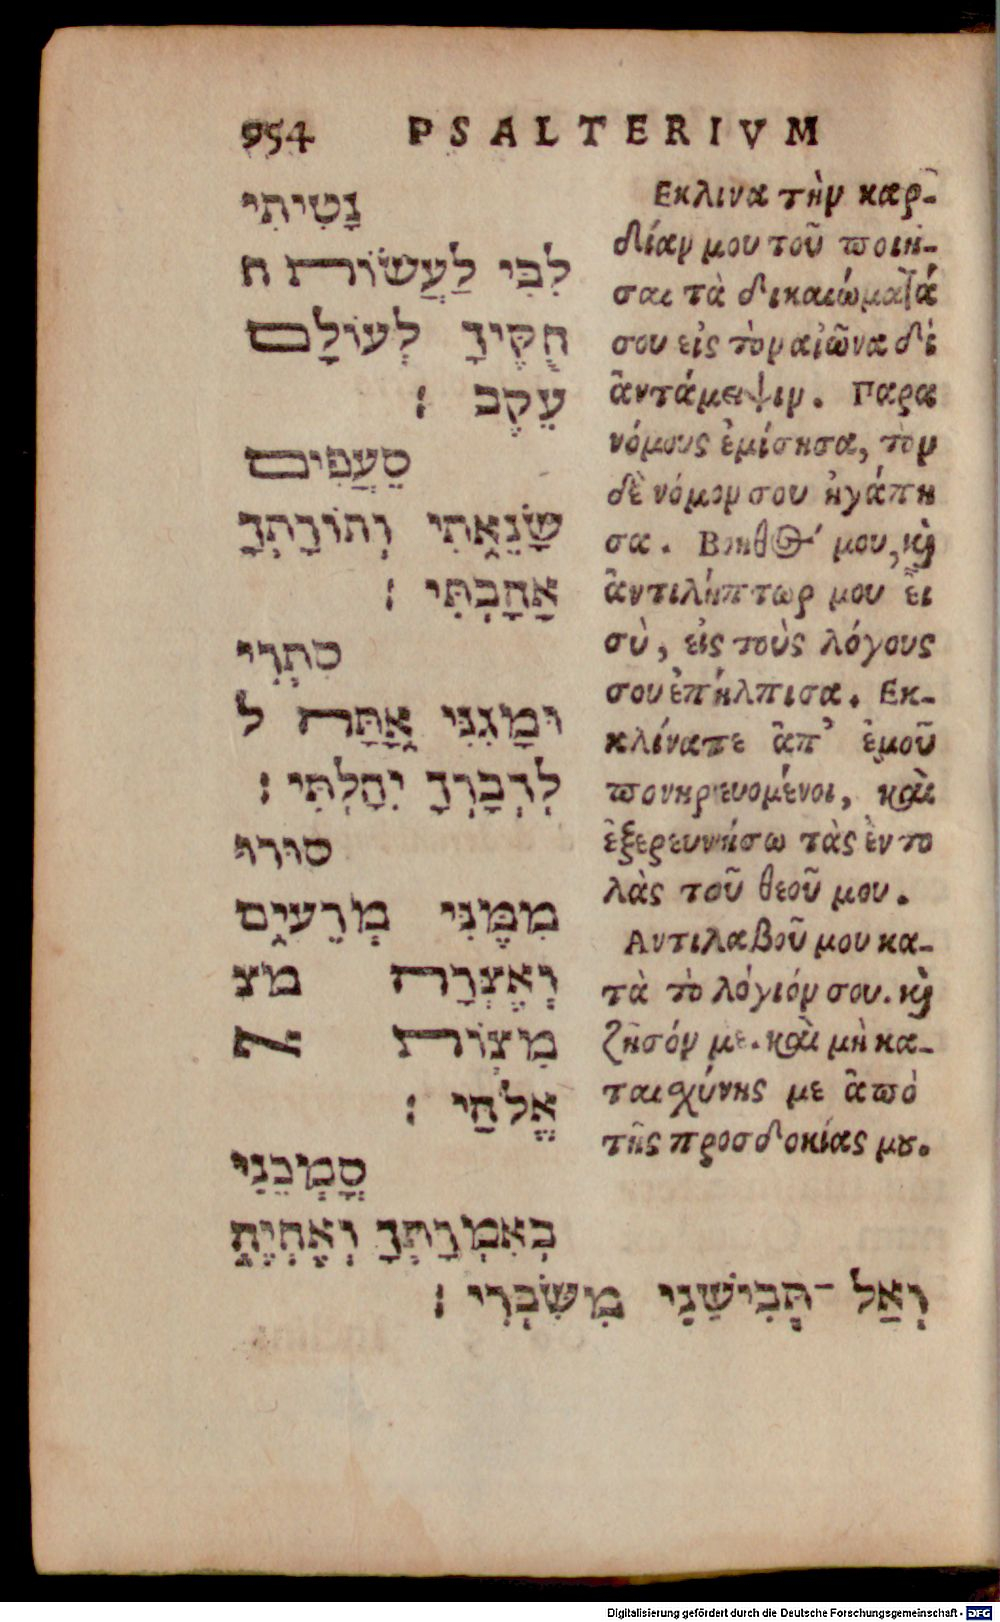 954 PSALTERIVM
נָטִיתִי
לִבִּי לַעֲשׂוֹת ח
חֻקֶּיךָ לְעוֹלָם
עֵקֶב :
סֵעֲפִים
שָׂנֵאתִי וְתוֹרָתְךָ
אָהָבְתִּי :
סִתְרִי
וּמָגִנִּי אָתָּה ל
לִדְבָרְךָ יִחָלְתִּי :
סוּרוּ
מִמֶּנִּי מְרֵעִים
וְאֶצְּרָה מצ
מִצְוֹת א
אֱלֹהָי :
סָמְכֵנִי
כְאִמְרָתְךָ וְאֶחְיֶה
וְאַל־תְּבִישֵׁנִי מִשִּׂבְרִי :
Εκλινα τὴν καρ-
δίαν μου τοῦ ποιη-
σαι τὰ δικαιώματά
σου εἰς τὸν αἰῶνα δἰ
ἀντάμειψιν. Παρα
νόμους ἐμίσησα, τὸν
δὲ νόμον σου ἠγάπη
σα. Βοηθός μου, καὶ
ἀντιλήπτωρ μου εἶ
σὺ, εἰς τοὺς λόγους
σου ἐπήλπισα. Εκ-
κλίνατε ἀπ' ἐμοῦ
πονηρευομένοι, καὶ
ἐξερευνήσω τὰς ἐντο
λὰς τοῦ θεοῦ μου.
Αντιλαβοῦ μου κα-
τὰ τὸ λόγιόν σου. καὶ
ζῆσόν με. καὶ μὴ κα-
ταισχύνης με ἀπὸ
τῆς προσδοκίας μου.
Digitalisierung gefördert durch die Deutsche Forschungsgemeinschaft - DFG